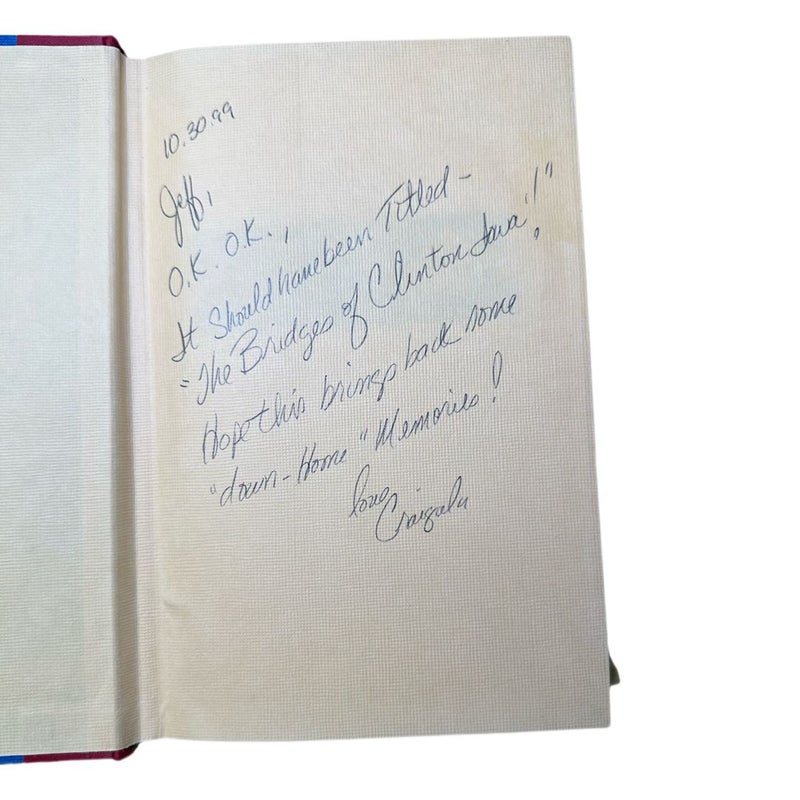 10.30.99
Jeff,
O.K. O.K.,
It Should have been Titled -
"The Bridges of Clinton Iowa!"
Hope this brings back some
"down-Home" Memories!
love